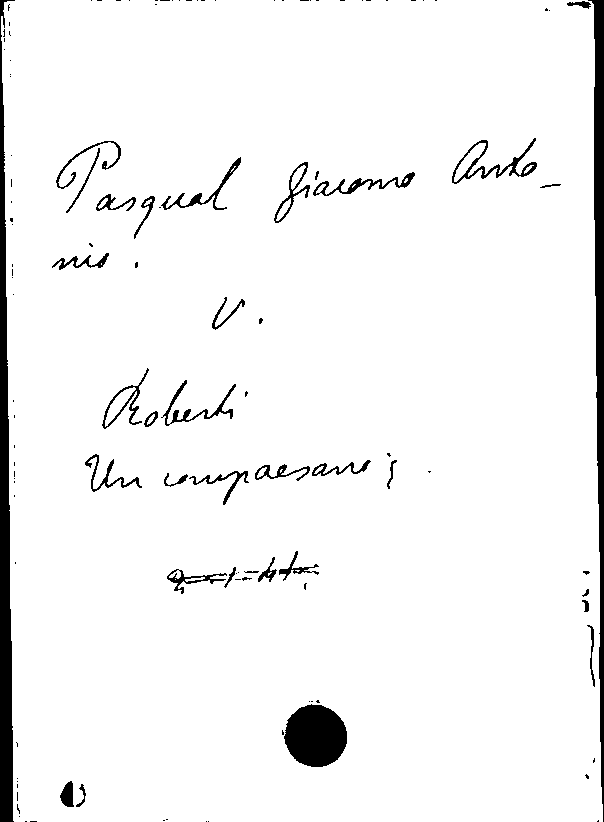 Pasqual Giacomo Anto-
nio.
V.
Roberti
Un compaesano;